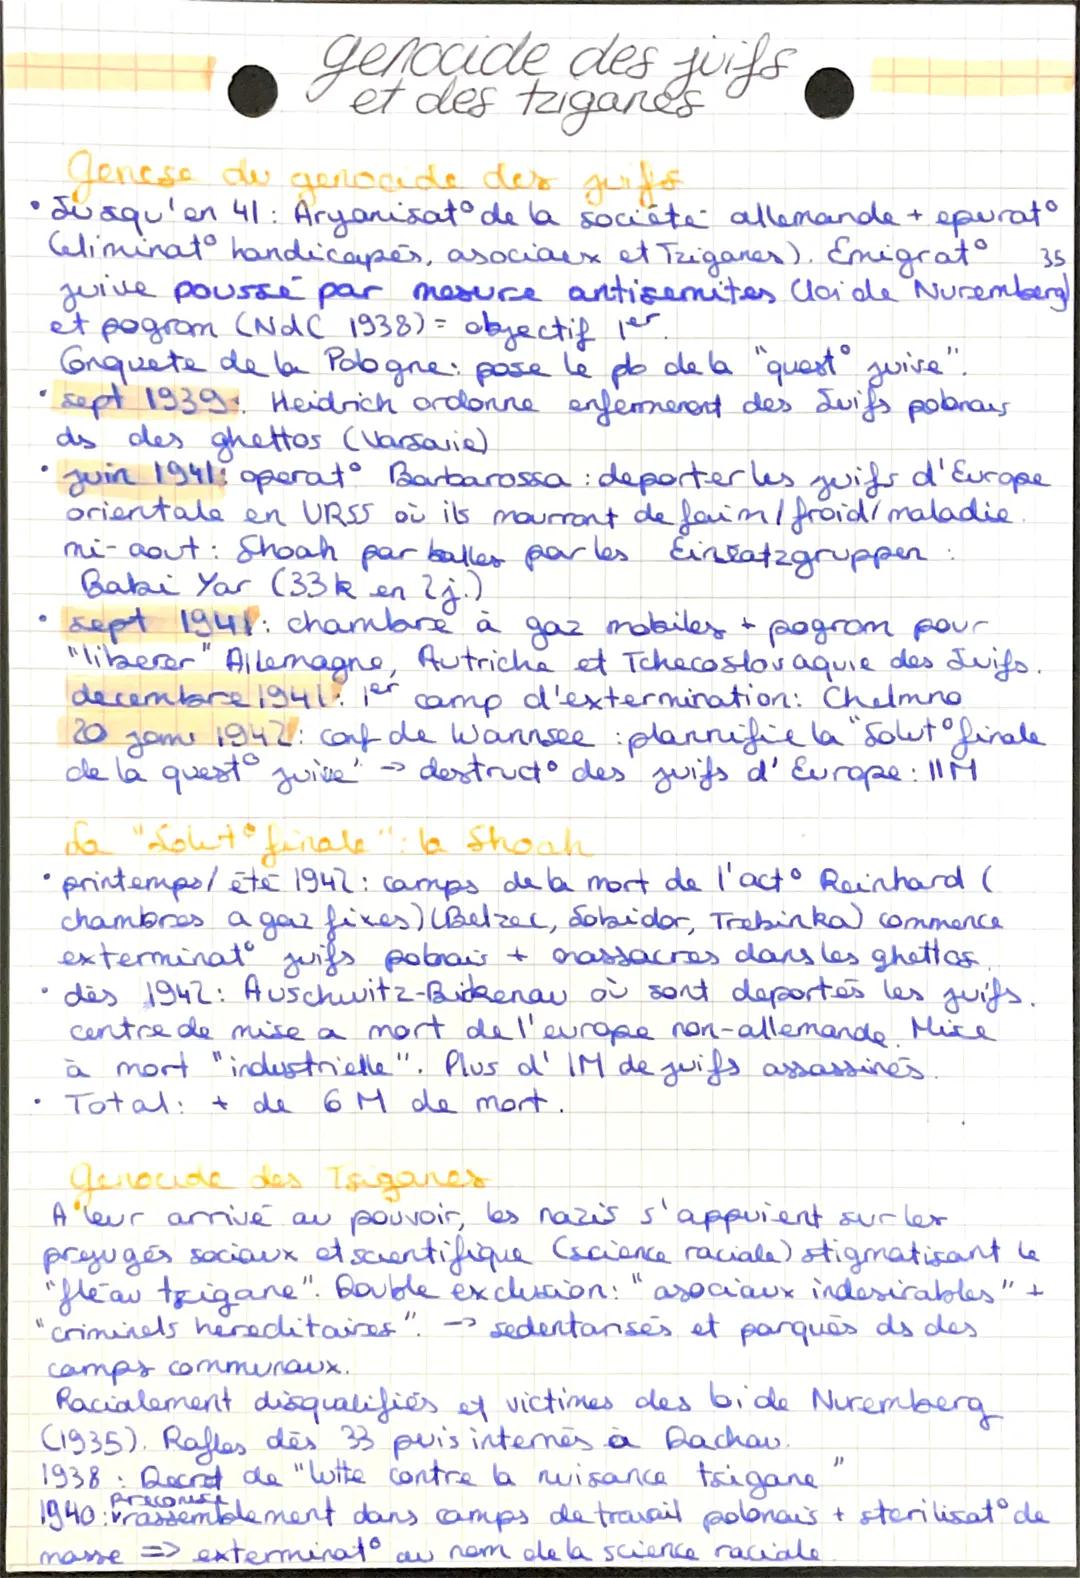 genocide des juifs
et des tziganes
Genese du genocide des juifs
• Jusqu'en 41 : Aryanisat° de la société allemande + epurat°
(eliminat° handicapés, asociaux et Tziganes). Emigrat° 35
juive poussé par mesure antisemites (loi de Nuremberg)
et pogrom (NdC 1938) = objectif 1er.
Conquete de la Pologne : pose le pb de la "quest° juive".
• sept 1939 : Heidrich ordonne enfermement des Juifs polonais
ds des ghettos (Varsovie)
• juin 1941 : operat° Barbarossa : deporter les juifs d'Europe
orientale en URSS où ils mourront de faim/froid/maladie.
mi-aout : Shoah par balles par les Einsatzgruppen :
Babi Yar (33k en 2j.)
• sept 1941 : chambre à gaz mobiles + pogrom pour
"liberer" Allemagne, Autriche et Tchecoslovaquie des Juifs.
decembre 1941 : 1er camp d'extermination : Chelmno
20 janv 1942 : conf de Wannsee : plannifie la "Solut° finale
de la quest° juive" -> destruct° des juifs d'Europe : 11M
La "Solut° finale" : la Shoah
• printemps/ été 1942 : camps de la mort de l'act° Reinhard (
chambres a gaz fixes) (Belzec, Sobidor, Trebinka) commence
exterminat° juifs polonais + massacres dans les ghettos.
• dès 1942 : Auschwitz-Birkenau où sont deportés les juifs.
centre de mise a mort de l'europe non-allemande. Mise
à mort "industrielle". Plus d'1M de juifs assassinés.
• Total : + de 6 M de mort.
Genocide des Tsiganes
A leur arrivé au pouvoir, les nazis s'appuient sur les
prejugés sociaux et scientifique (science raciale) stigmatisant le
"fléau tzigane". Double exclusion : "asociaux indesirables" +
"criminels hereditaires". -> sedentarisés et parqués ds des
camps communaux.
Racialement disqualifiés et victimes des loi de Nuremberg
(1935). Rafles dès 33 puis internés à Dachau.
1938 : Decret de "lutte contre la nuisance tsigane"
1940 : preconise rassemblement dans camps de travail polonais + sterilisat° de
masse => exterminat° au nom de la science raciale